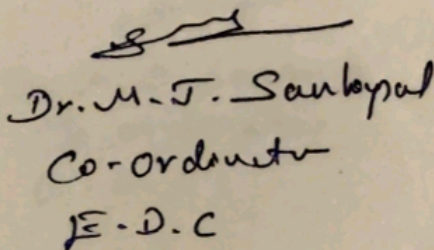 Dr. M. J. Sankapal
Co-ordinator
E.D.C